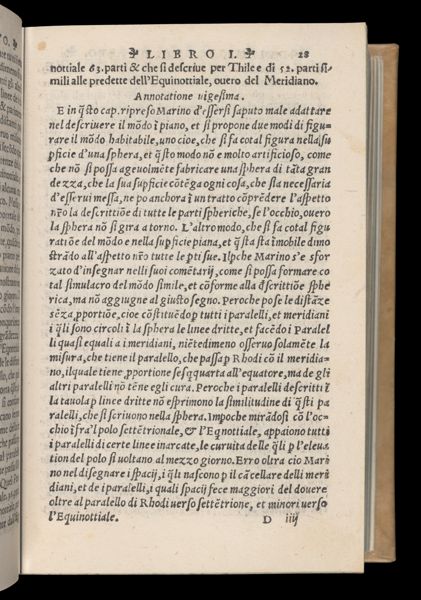 LIBRO I. 28
nottiale 63. parti & che si descriue per Thile e di 52. parti si-
mili alle predette dell'Equinottiale, ouero del Meridiano.
Annotatione uigesima.
E in q̃sto cap. ripreso Marino d'essersi saputo male adattare
nel descriuere il mõdo ĩ piano, et si propone due modi di figu-
rare il mõdo habitabile, uno cioe, che si fa cotal figura nella su
pficie d'una sphera, et q̃sto modo nõ e molto artificioso, come
che nõ si possa ageuolmẽte fabricare una sphera di tãta gran
dezza, che la sua supficie cõtẽga ogni cosa, che sia necessaria
d'esserui messa, ne po anchora ĩ un tratto cõprẽdere l'aspetto
nr̃o la descrittiõe di tutte le parti spheriche, se l'occhio, ouero
la sphera nõ si gira a torno. L'altro modo, che si fa cotal figu
ratiõe del mõdo e nella supficie piana, et q̃sta sta ĩmobile dimo
strãdo all'aspetto nr̃o tutte le pti sue. Ilpche Marino s'e sfor
zato d'insegnar nelli suoi comẽtarij, come si possa formare co
tal simulacro del mõdo simile, et cõforme alla d̃scrittiõe sphe
rica, ma nõ aggiugne al giusto segno. Peroche pose le distãze
sẽza pportiõe, cioe cõstituẽdo p tutti i paralelli, et meridiani
i q̃li sono circoli ĩ la sphera le linee dritte, et facẽdo i Paralel
li quasi equali a i meridiani, niẽtedimeno osseruo solamẽte la
misura, che tiene il paralello, che passa p Rhodi cõ il meridia-
no, ilquale tiene pportione sesq̃quarta all'equatore, ma de gli
altri paralelli nõ tẽne egli cura. Peroche i paralelli descritti ĩ
la tauola p linee dritte nõ esprimono la similitudine di q̃sti pa
ralelli, che si scriuono nella sphera. Impoche mirãdosi cõ l'oc-
chio ĩ fra'l polo settẽtrionale, & l'Eqnottiale, appaiono tutti
i paralelli di certe linee inarcate, le curuita delle q̃li p l'eleua
tion del polo si uoltano al mezzo giorno. Erro oltra cio Mari
no nel disegnare i spacij, i q̃li nascono p il cãcellare delli meri
diani, et de i paralelli, i quali spacij fece maggiori del douere
oltre al paralello di Rhodi uerso settẽtrione, et minori uerso
l'Equinottiale. D iiij